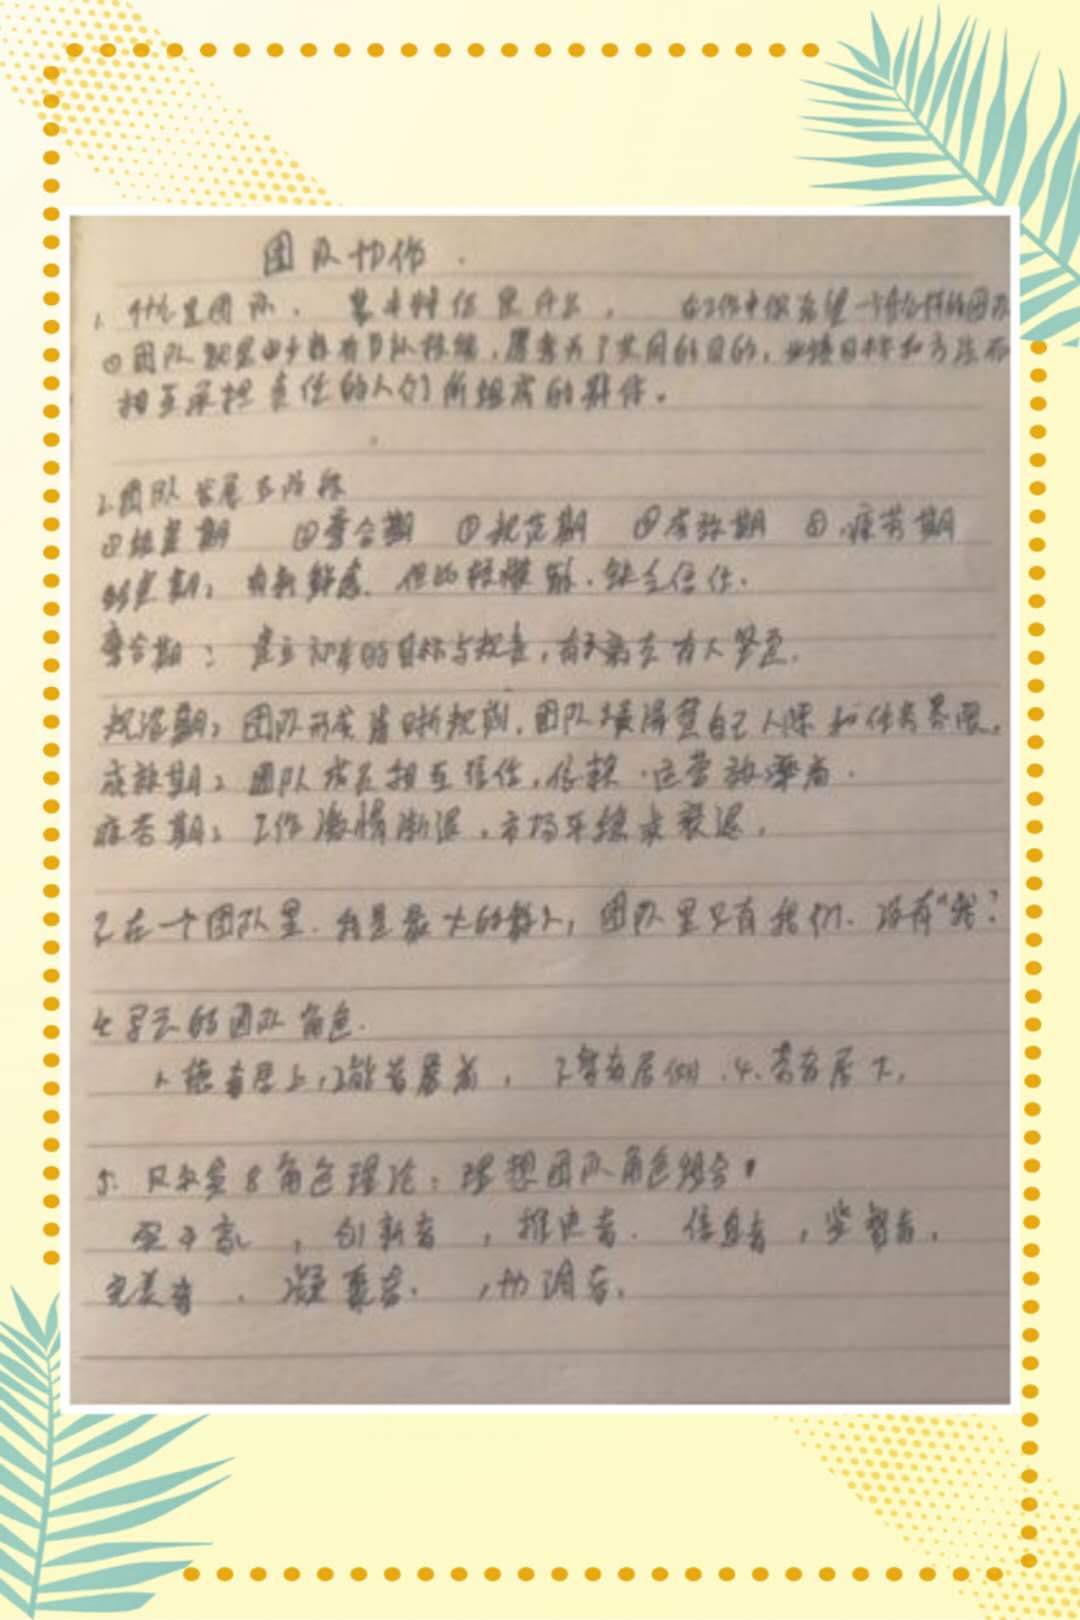 团队协作.
1. 什么是团队、基本特征是什么，在工作中你希望一个什么样的团队
①团队就是由少数有 ，愿意为了共同的目的，业绩目标和方法而
相互承担责任的人们所组成的群体。
2.团队发展五阶段
①组建期 ②磨合期 ③规范期 ④ 效期 ⑤疲劳期
期：有新鲜感、但 缺乏信任.
磨合期：建立初 的目标与 ，有 有人
规范期：团队形成清晰规则，团队 清楚自己人际和任务界限。
成效期：团队成员相互信任，依赖，运营效率高.
疲劳期：工作激情渐退，市场 衰退，
3.在一个团队里.我是最大的敌人，团队里只有我们.没有"我"
4. 的团队角色.
1.德者居上，2能者居前，3智者居侧.4.劳者居下，
5.贝尔宾8角色理论：理想团队角色组合
实干家，创新者，推进者. 信息者，监督者，
完美者. 凝聚者. ，协调者.